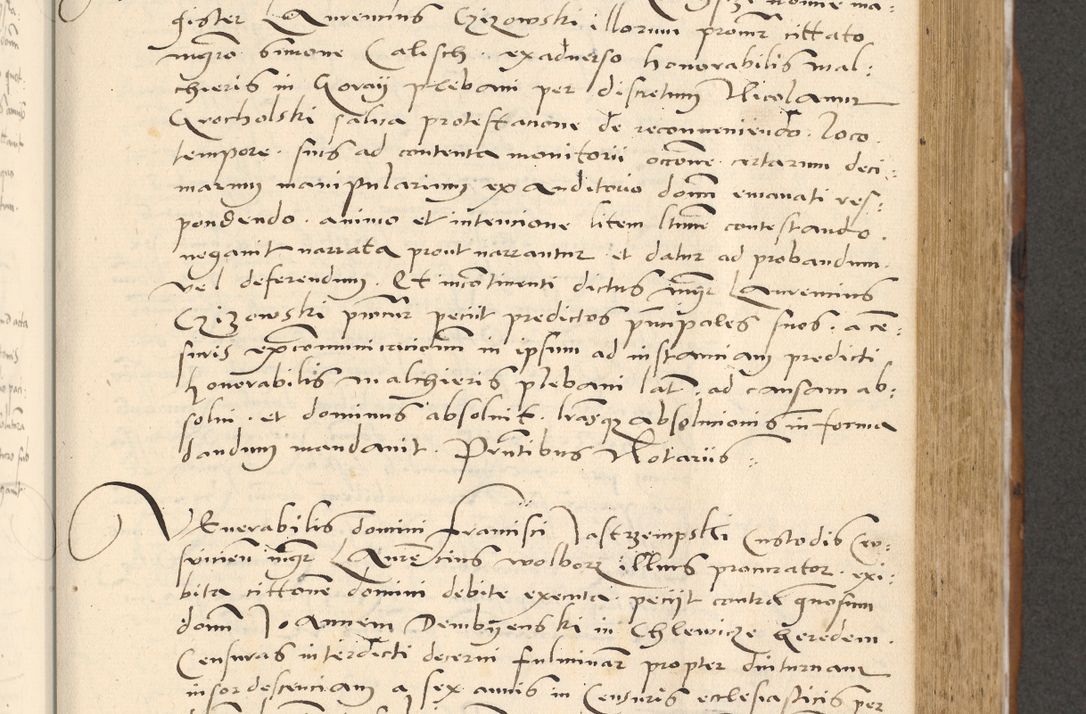 gister Laurencius Czizowski illorum procur cittato
mgro Simone Calisch. ex adverso honorabilis Mal:
chieris in Goraij plebani per discretum Nicolaum
Grocholski salva protestatione de reconveniendo. loco.
tempore. suis ad contenta monitorii occone certarum deci:
marum manipularium ex auditorio domni emanati res:
pondendo. animo et intencione litem ltime contestando.
negavit narrata prout narrantur. et datur ad probandum.
vel deferendum. Et incontinenti dictus mgr Laurencius
Czizowski procur petiit predictos principales suos. a ce:
suris excommunicacionum in ipsum ad instanciam predicti
honorabilis malchieris plebani lat. ad causam ab:
solvi. et dominus absolvit. lrasqz absolucionis in forma
dandum mandavit. Prntibus Notariis
Venerabilis domini Francisci Jastrzempski Custodis Cra:
covicien mgr Laurencius Wolborz illius procurator. exi:
bita cittone domini debite executa. petijt contra gnosum
domn Joannem Dembijenski in Chlewicze heredem.
Censuras interdicti decerni fulminar propter diuturnam
insordescenciam a sex annis in Censuris ecclesiasticis per